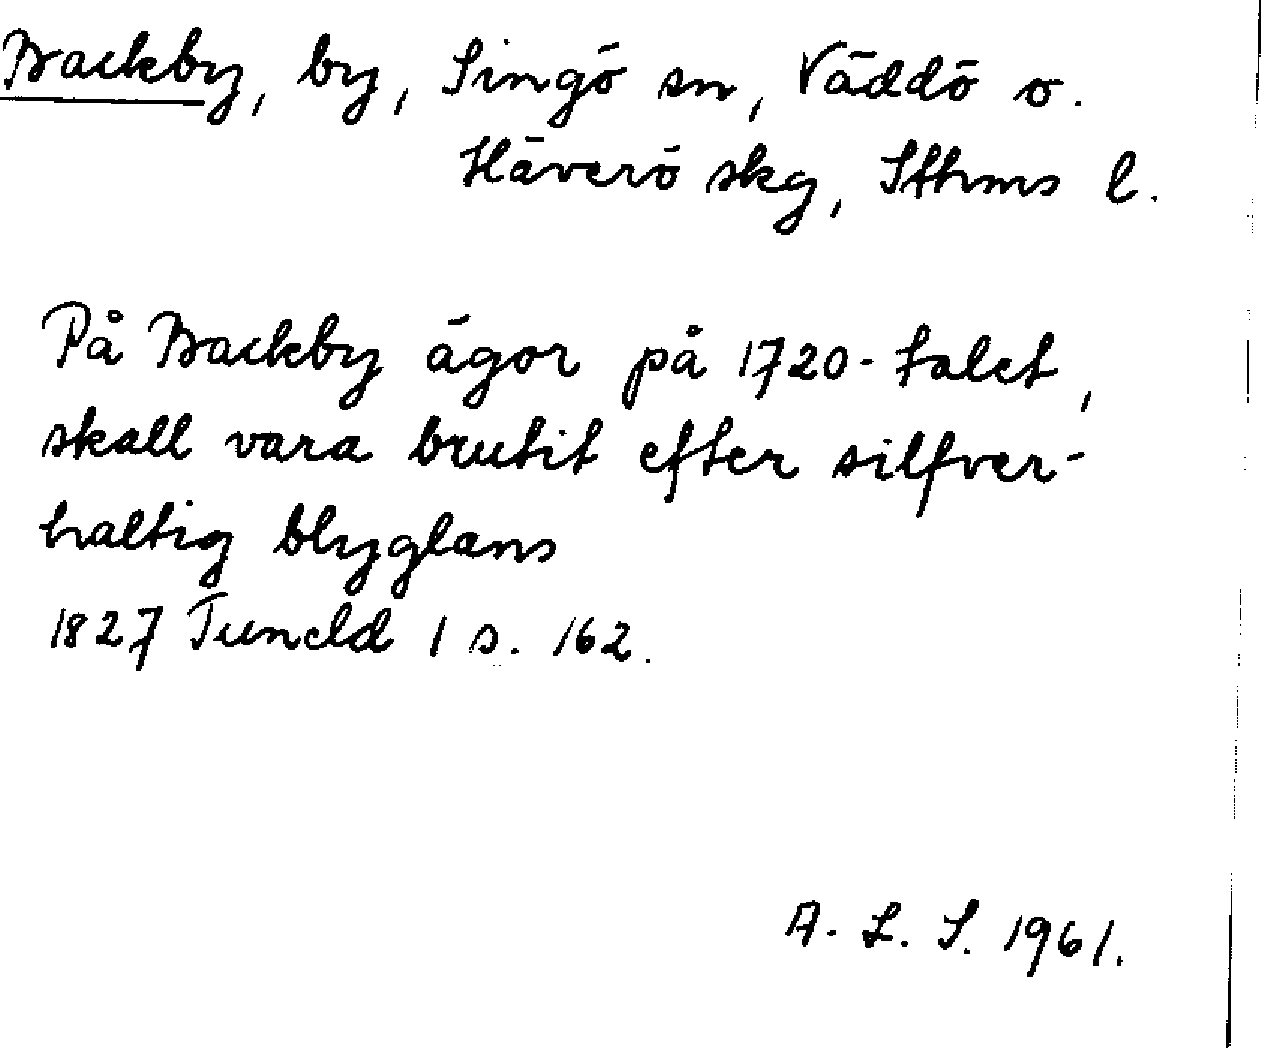 Backby, by, Singö sn, Väddö o.
Häverö skg, Sthms l.
På Backby ägor på 1720-talet,
skall vara brutit efter silfver-
haltig blyglans
1827 Tuneld 1 s. 162.
A. L. S. 1961.